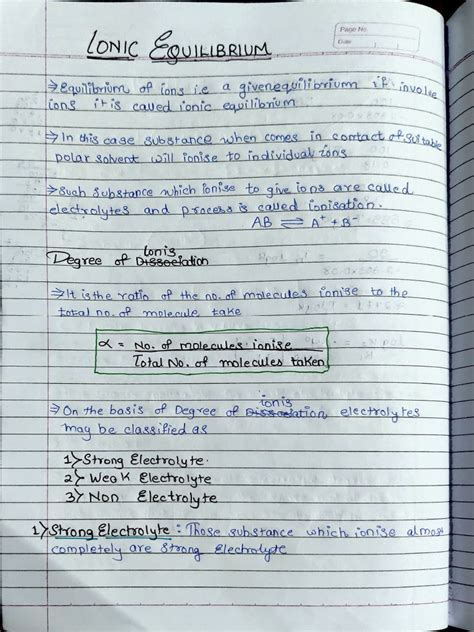 Page No.
Date
IONIC EQUILIBRIUM
→ Equilibrium of ions i.e a given equilibrium if involve
ions it is called ionic equilibrium
→ In this case substance when comes in contact of suitable
polar solvent will ionise to individual ions
→ Such substance which ionise to give ions are called
electrolytes and process is called ionisation.
AB ⇌ A⁺ + B⁻
Ionis
Degree of Dissociation
→ It is the ratio of the no. of molecules ionise to the
total no. of molecule take
α = No. of molecules ionise
Total No. of molecules taken
ionis
→ On the basis of Degree of Dissociation, electrolytes
may be classified as
1) Strong Electrolyte.
2) Weak Electrolyte
3) Non Electrolyte
1) Strong Electrolyte : Those substance which ionise almost
completely are strong Electrolyte